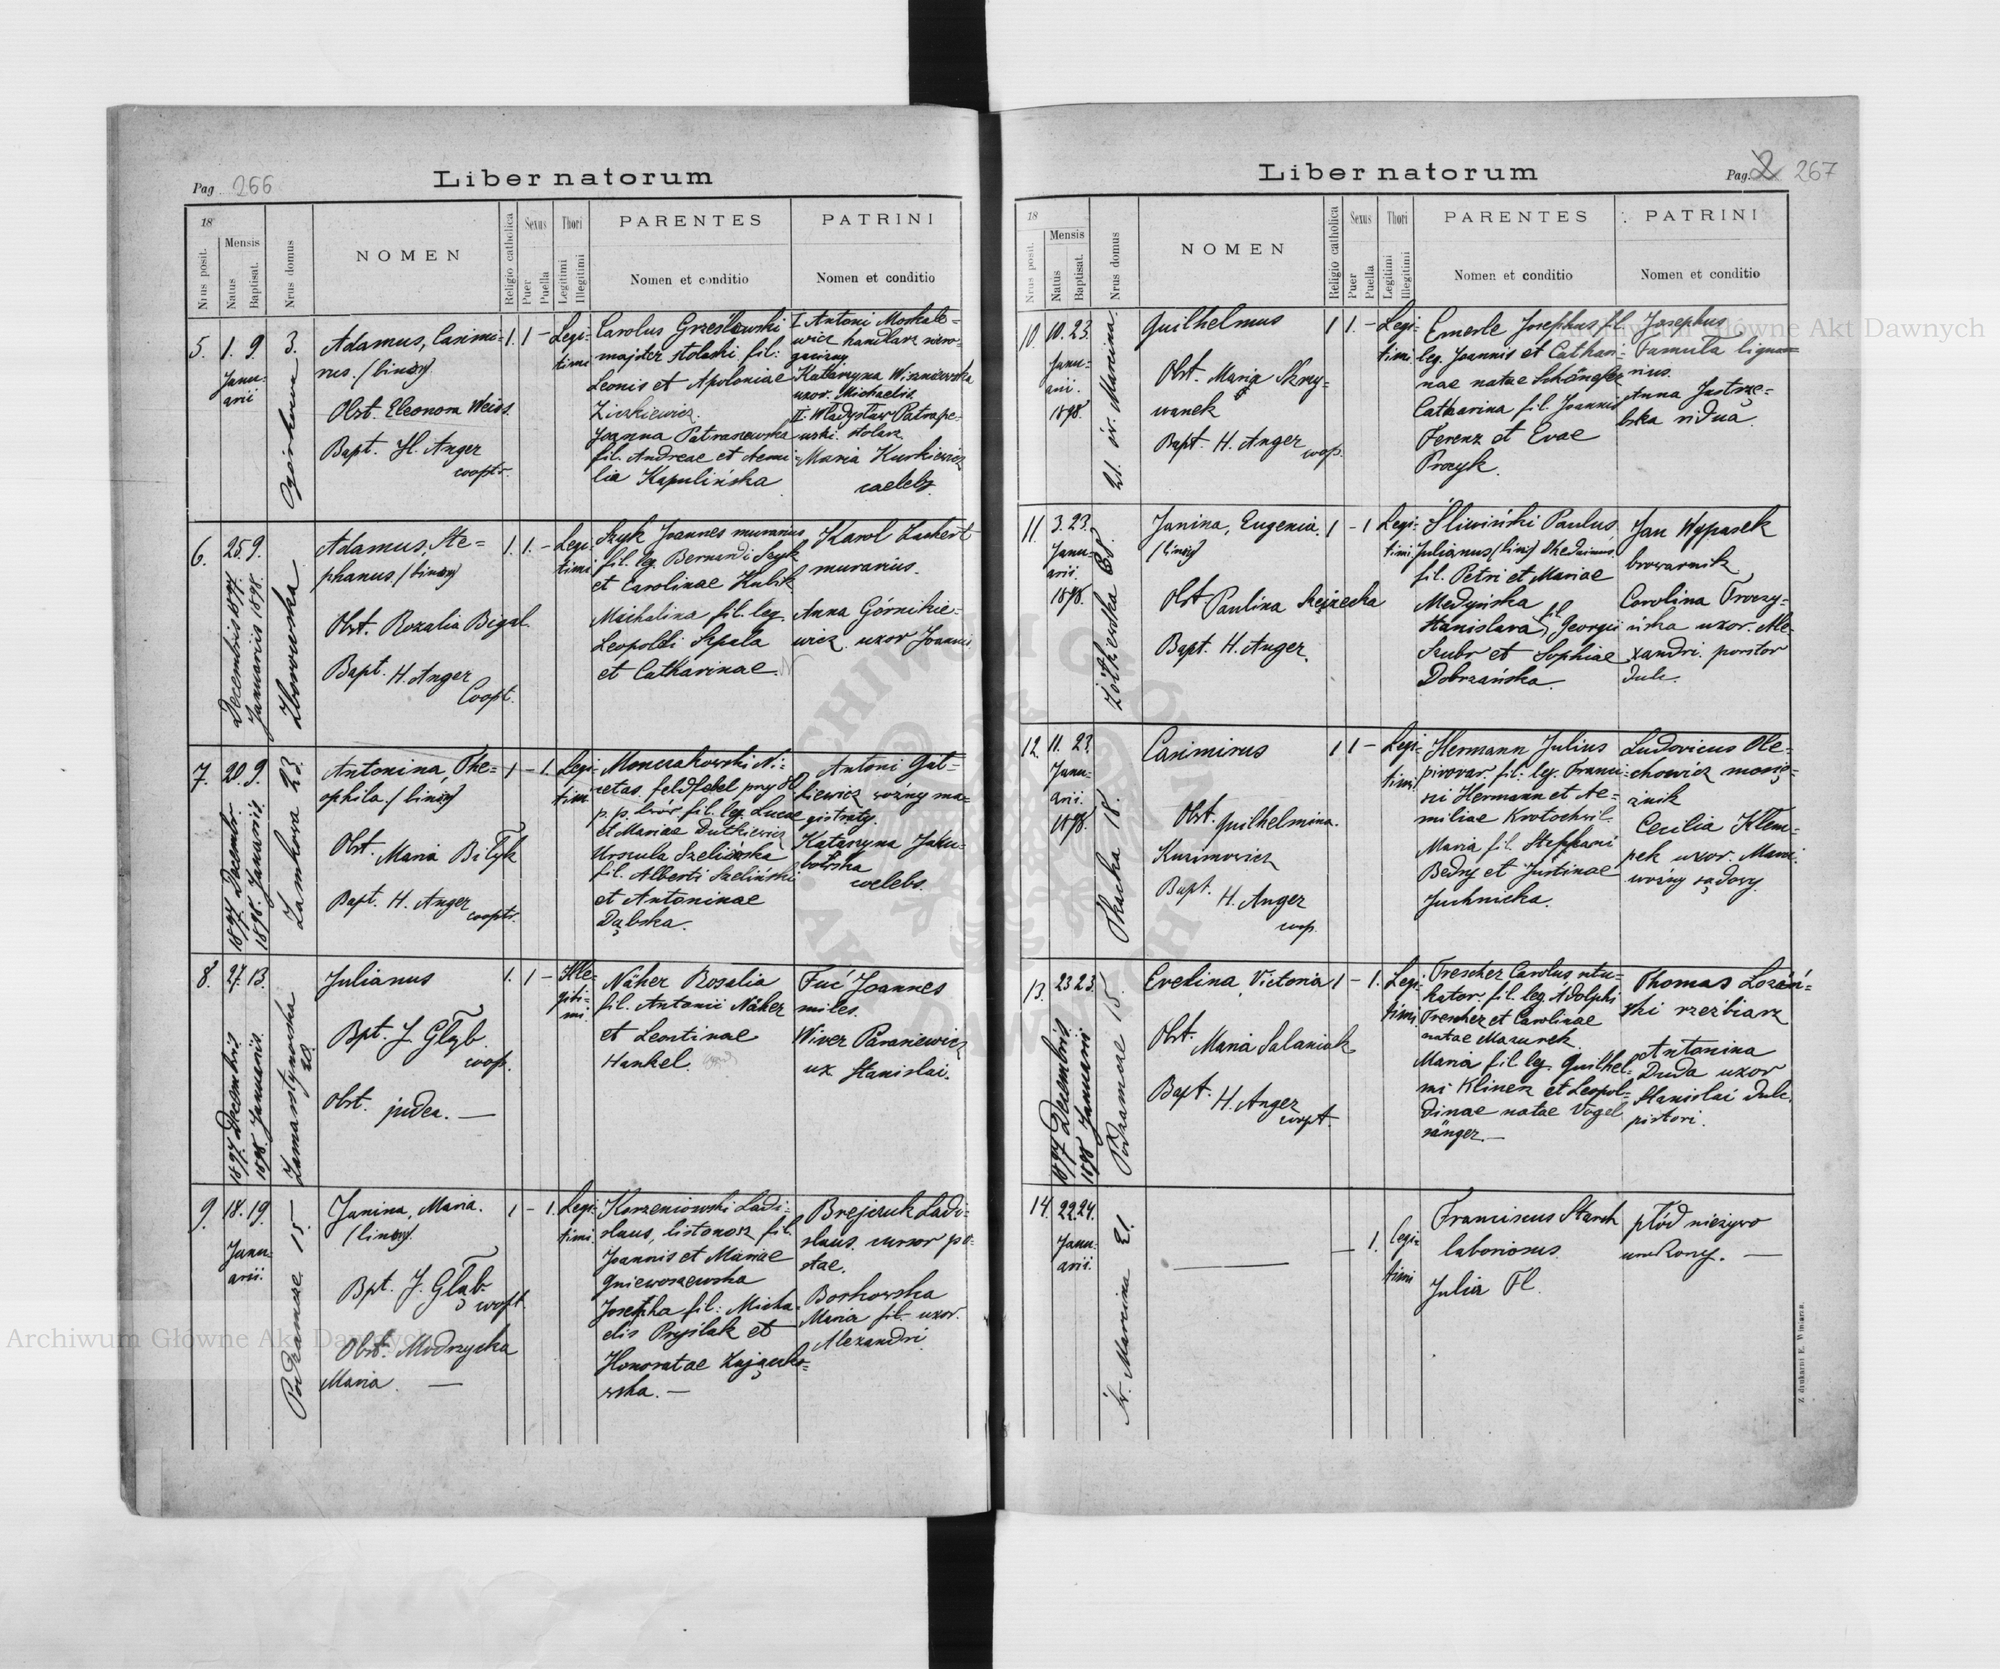 Pag. 266
Liber natorum
18
Nrus posit.
Mensis
Natus
Baptisat.
Nrus domus
NOMEN
Religio catholica
Sexus
Puer
Puella
Thori
Legitimi
Illegitimi
PARENTES
Nomen et conditio
PATRINI
Nomen et conditio
5. 1. 9. 3.
Janu-
arii
Adamus, Casimi-
rus. (binom)
Obst. Eleonora Weiss
Bapt. H. Anger
coopt.
1. 1 -
Legi-
timi
Carolus Grześlowski
majster stolarski fil:
Leonis et Apoloniae
Joanna Patraszewska
fil. Andreae et Aemi-
lia Kapulińska
I Antoni Moskale-
wicz
Katarzyna Wiszniewska
uxor. Michaelis.
II. Władysław
stolarz
Maria Kurkiewicz
caelebs.
6. 25. 9.
Decembris 1897.
Januarii 1898.
Zborowska
Adamus, Ste-
phanus (binom)
Obst. Rozalia Bigal.
Bapt. H. Anger
Coopt.
1. 1. -
Legi-
timi
Szyk Joannes murarius
fil. leg. Bernardi Szyk
et Carolinae Kubik
Michalina fil. leg.
Leopoldi Szpala
et Catharinae
Karol Zankert
murarius.
Anna Górnikie-
wicz uxor Joannis
7. 20. 9.
1897. Decembr.
1898. Januarii.
Zamkowa 23.
Antonina, The-
ophila. (binom)
Obst. Maria Bilyk
Bapt. H. Anger
coopt.
1 - 1.
Legi-
tim
Ni-
cetas. feldfebel przy 80
p. p. fil. leg. Lucae
et Mariae Dutkiewicz
Urszula Szelińska
fil. Alberti Szeliński
et Antoninae
Dąbska.
Antoni Gut-
kiewicz woźny ma-
gistraty.
Katarzyna Jaku-
bowska
caelebs.
8. 27. 13.
1897. Decembris
1898. Januarii.
Zamarstynowska
Julianus
Bpt. J. Głąb
coop.
Obst. judea. —
1. 1 -
Ille-
giti-
mi.
Näher Rosalia
fil. Antonii Näher
et Leontinae
Hankel.
Fuć Joannes
miles.
Wiver Paraniewicz
ux Stanislai.
9. 18. 19.
Janu-
arii.
Podzamcze 15.
Janina, Maria.
(binom).
Bpt. J. Głąb
coopt
Obst. Modrzycka
Maria. —
1 - 1.
Legi-
timi.
Korzeniowski Ladi-
slaus, listonosz fil.
Joannis et Mariae
Gniewoszewska
Josepha fil: Micha-
elis Prysilak et
Honoratae Zającko-
wska. —
Brejczuk Ladi-
slaus. cursor po-
stae.
Borkowska
Maria fil. uxor.
Alexandri
Liber natorum
Pag. 2 267
18
Nrus posit.
Mensis
Natus
Baptisat.
Nrus domus
NOMEN
Religio catholica
Sexus
Puer
Puella
Thori
Legitimi
Illegitimi
PARENTES
Nomen et conditio
PATRINI
Nomen et conditio
10. 10. 23.
Janu-
arii.
1898.
21. św. Marcina.
Guilhelmus
Obst. Maria Skrzy-
wanek
Bapt. H. Anger
coop.
1 1. -
Legi-
timi
Emerle Josephus fil.
leg. Joannis et Cathari-
nae natae
Catharina fil. Joannis
Ferenz et Evae
Prozyk.
Josephus
Famula ligna-
rius.
Anna Jastrze-
bska vidua.
11. 3. 23.
Janu-
arii.
1898.
Żółkiewska
Janina, Eugenia.
(binom)
Obst Paulina
Bapt. H. Anger.
1 - 1
Legi-
timi.
Śliwiński Paulus,
Julianus (bin)
fil. Petri et Mariae
Medyńska
Stanislava, fil. Georgii
Szubr et Sophiae
Dobrzańska.
Jan Wypasek
browarnik
Carolina Troczy-
ńska uxor. Ale-
xandri.
12. 11. 23.
Janu-
arii
1898.
Tkacka 18.
Casimirus
Obst. Guilhelmina.
Kuzimowicz
Bapt. H. Anger
coop.
1 1 -
Legi-
timi
Hermann Julius
piwowar. fil: leg. Franci-
sci Hermann et Ae-
miliae Krotochwil.
Maria fil. Stephani
Bedry et Justinae
Juchnicka.
Ludovicus Ole-
chowicz mosię-
żnik
Cecilia Klem-
pek uxor. Marci.
woźny sądowy.
13. 23 23.
1897 Decembris.
1898 Januarii
Podzamcze 15.
Evelina, Victoria
Obst. Maria Salaniak
Bapt. H. Anger
coopt.
1 - 1.
Legi-
timi
Trescher Carolus stu-
kator. fil. leg. Adolphi
Trescher et Carolinae
natae Mazurek.
Maria fil. leg. Guilhel-
mi Klinez et Leopol-
dinae natae Vogel
sänger. —
Thomas Lozań-
ski rzeźbiarz
Antonina
Duda uxor
Stanislai dulc.
pistori.
14. 22. 24.
Janu-
arii.
św. Marcina 21.
— 1.
Legi-
timi
Franciscus Starch
laboriosus
Julia Fl.
płód nieżywo
urodzony. —
Z drukarni E. Winiarza.
Archiwum Główne Akt Dawnych
Archiwum Główne Akt Dawnych